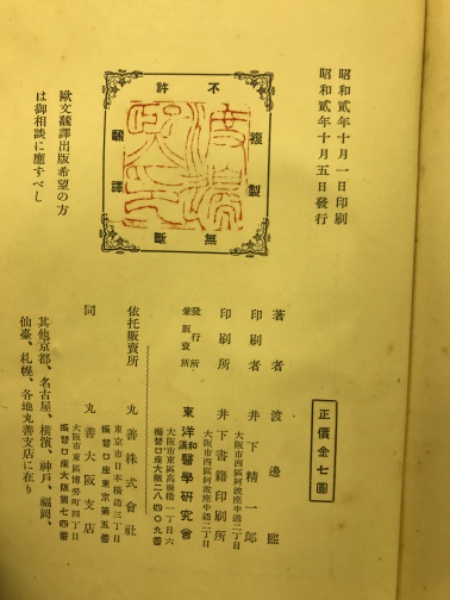 昭和貳年十月一日印刷
昭和貳年十月五日發行
不許
複製
無斷
飜譯
歐文飜譯出版希望の方
は御相談に應すべし
正價金七圓
著者 渡邊熙
印刷者 井下精一郎
大阪市西區阿波座中通二丁目
印刷所 井下書籍印刷所
大阪市西區阿波座中通二丁目
發行所
彙販賣所
東洋和漢醫學研究會
大阪市東區高麗橋一丁目六
振替口座大阪二八四〇九番
依托販賣所 丸善株式會社
東京市日本橋通三丁目
振替口座東京第五番
同 丸善大阪支店
大阪市東區博勞町四丁目
振替口座大阪第七四番
其他京都、名古屋、橫濱、神戶、福岡、
仙臺、札幌、各地丸善支店に在り